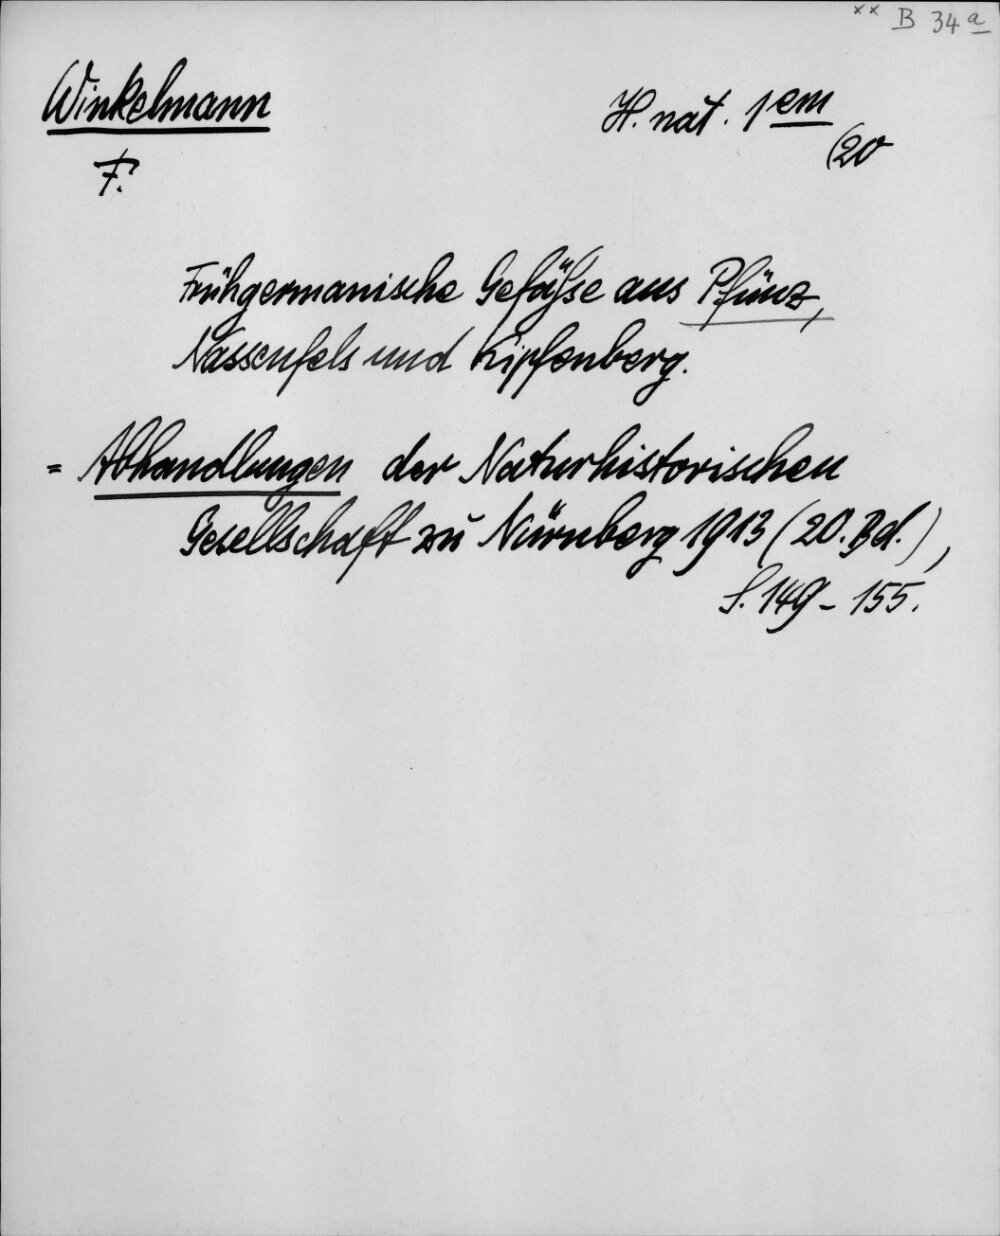 xx B 34 a
Winkelmann
H. nat. 1 em
(20
F.
Frühgermanische Gefäße aus Pfünz,
Nassenfels und Kipfenberg.
= Abhandlungen der Naturhistorischen
Gesellschaft zu Nürnberg 1913 (20. Bd.),
S. 149 - 155.